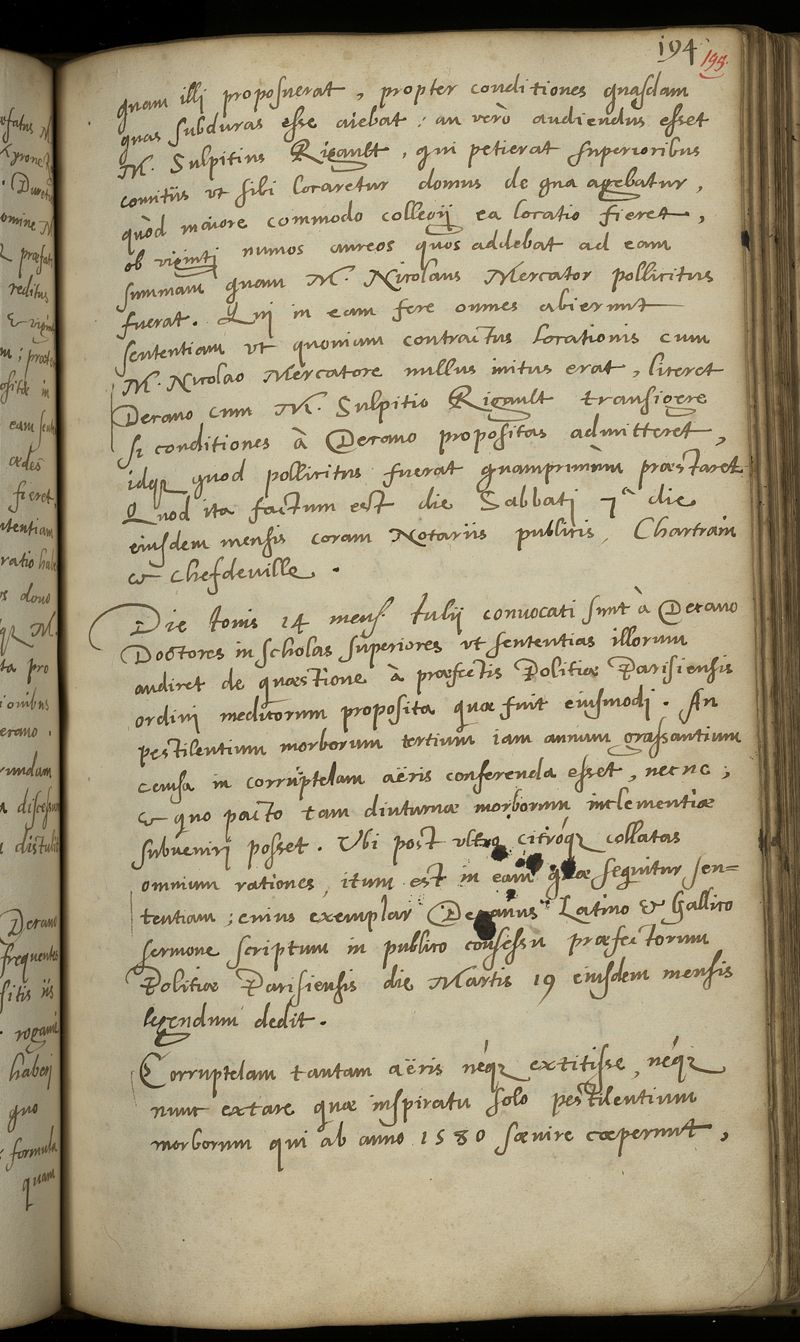 194 194.
quam illj proposuerat, propter conditiones quasdam
quas subduras esse aiebat: an verò audiendus esset
M. Sulpitius Rigault, qui petierat superioribus
comitiis ut sibi locaretur domus de qua agebatur,
quòd maiore commodo collegij ea locatio fieret,
ob viginti numos aureos quos addebat ad eam
summam quam M. Nicolaus Mercator pollicitus
fuerat. Qui in eam fere omnes abierunt
sententiam ut quoniam contractus locationis cum
M. Nicolao Mercatore nullus initus erat, liceret
Decano cum M. Sulpitio Rigault transigere
si conditiones à Decano propositas admitteret,
idq quod pollicitus fuerat quamprimùm præstaret
Quod ita factum est die Sabbatj 7ª die
eiusdem mensis coram Notariis publicis, Chartrain
& Chefdeville.
Die Iovis 14 mens. Iulij convocati sunt à Decano
Doctores in scholas superiores ut sententias illorum
audiret de quæstione à præfectis Politiæ Parisiensis
ordini medicorum proposita quæ fuit eiusmodj. An
pestilentium morborum tertium iam annum grassantium
causa in corruptelam aëris conferenda esset, necne;
& quo pacto tam diuturnæ morborum inclementiæ
subvenirj posset. Ubi post ultro citróq collatas
omnium rationes, itum est in eam quæ sequitur sen=
tentiam; cuius exemplar Decanus Latino & Gallico
sermone scriptum in publico consessu præfectorum
Politiæ Parisiensis die Martis 19 eiusdem mensis
legendum dedit.
Corruptelam tantam aëris néq extitisse, néq
nunc extare quæ inspiratu solo pestilentium
morborum qui ab anno 1580 sævire cœperunt,